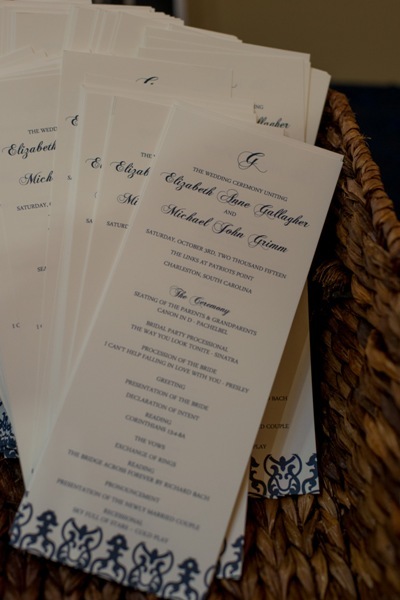 G
THE WEDDING CEREMONY UNITING
Elizabeth Anne Gallagher
AND
Michael John Grimm
SATURDAY, OCTOBER 3RD, TWO THOUSAND FIFTEEN
THE LINKS AT PATRIOTS POINT
CHARLESTON, SOUTH CAROLINA
The Ceremony
SEATING OF THE PARENTS & GRANDPARENTS
CANON IN D - PACHELBEL
BRIDAL PARTY PROCESSIONAL
THE WAY YOU LOOK TONITE - SINATRA
PROCESSION OF THE BRIDE
I CAN'T HELP FALLING IN LOVE WITH YOU - PRESLEY
GREETING
PRESENTATION OF THE BRIDE
DECLARATION OF INTENT
READING
CORINTHIANS 13:4-8A
THE VOWS
EXCHANGE OF RINGS
READING
THE BRIDGE ACROSS FOREVER BY RICHARD BACH
PRONOUNCEMENT
PRESENTATION OF THE NEWLY MARRIED COUPLE
RECESSIONAL
SKY FULL OF STARS - COLD PLAY
THE WED
Elizabeth
Mich
SATURDAY,
Gallagher
COUPLE
PLAY